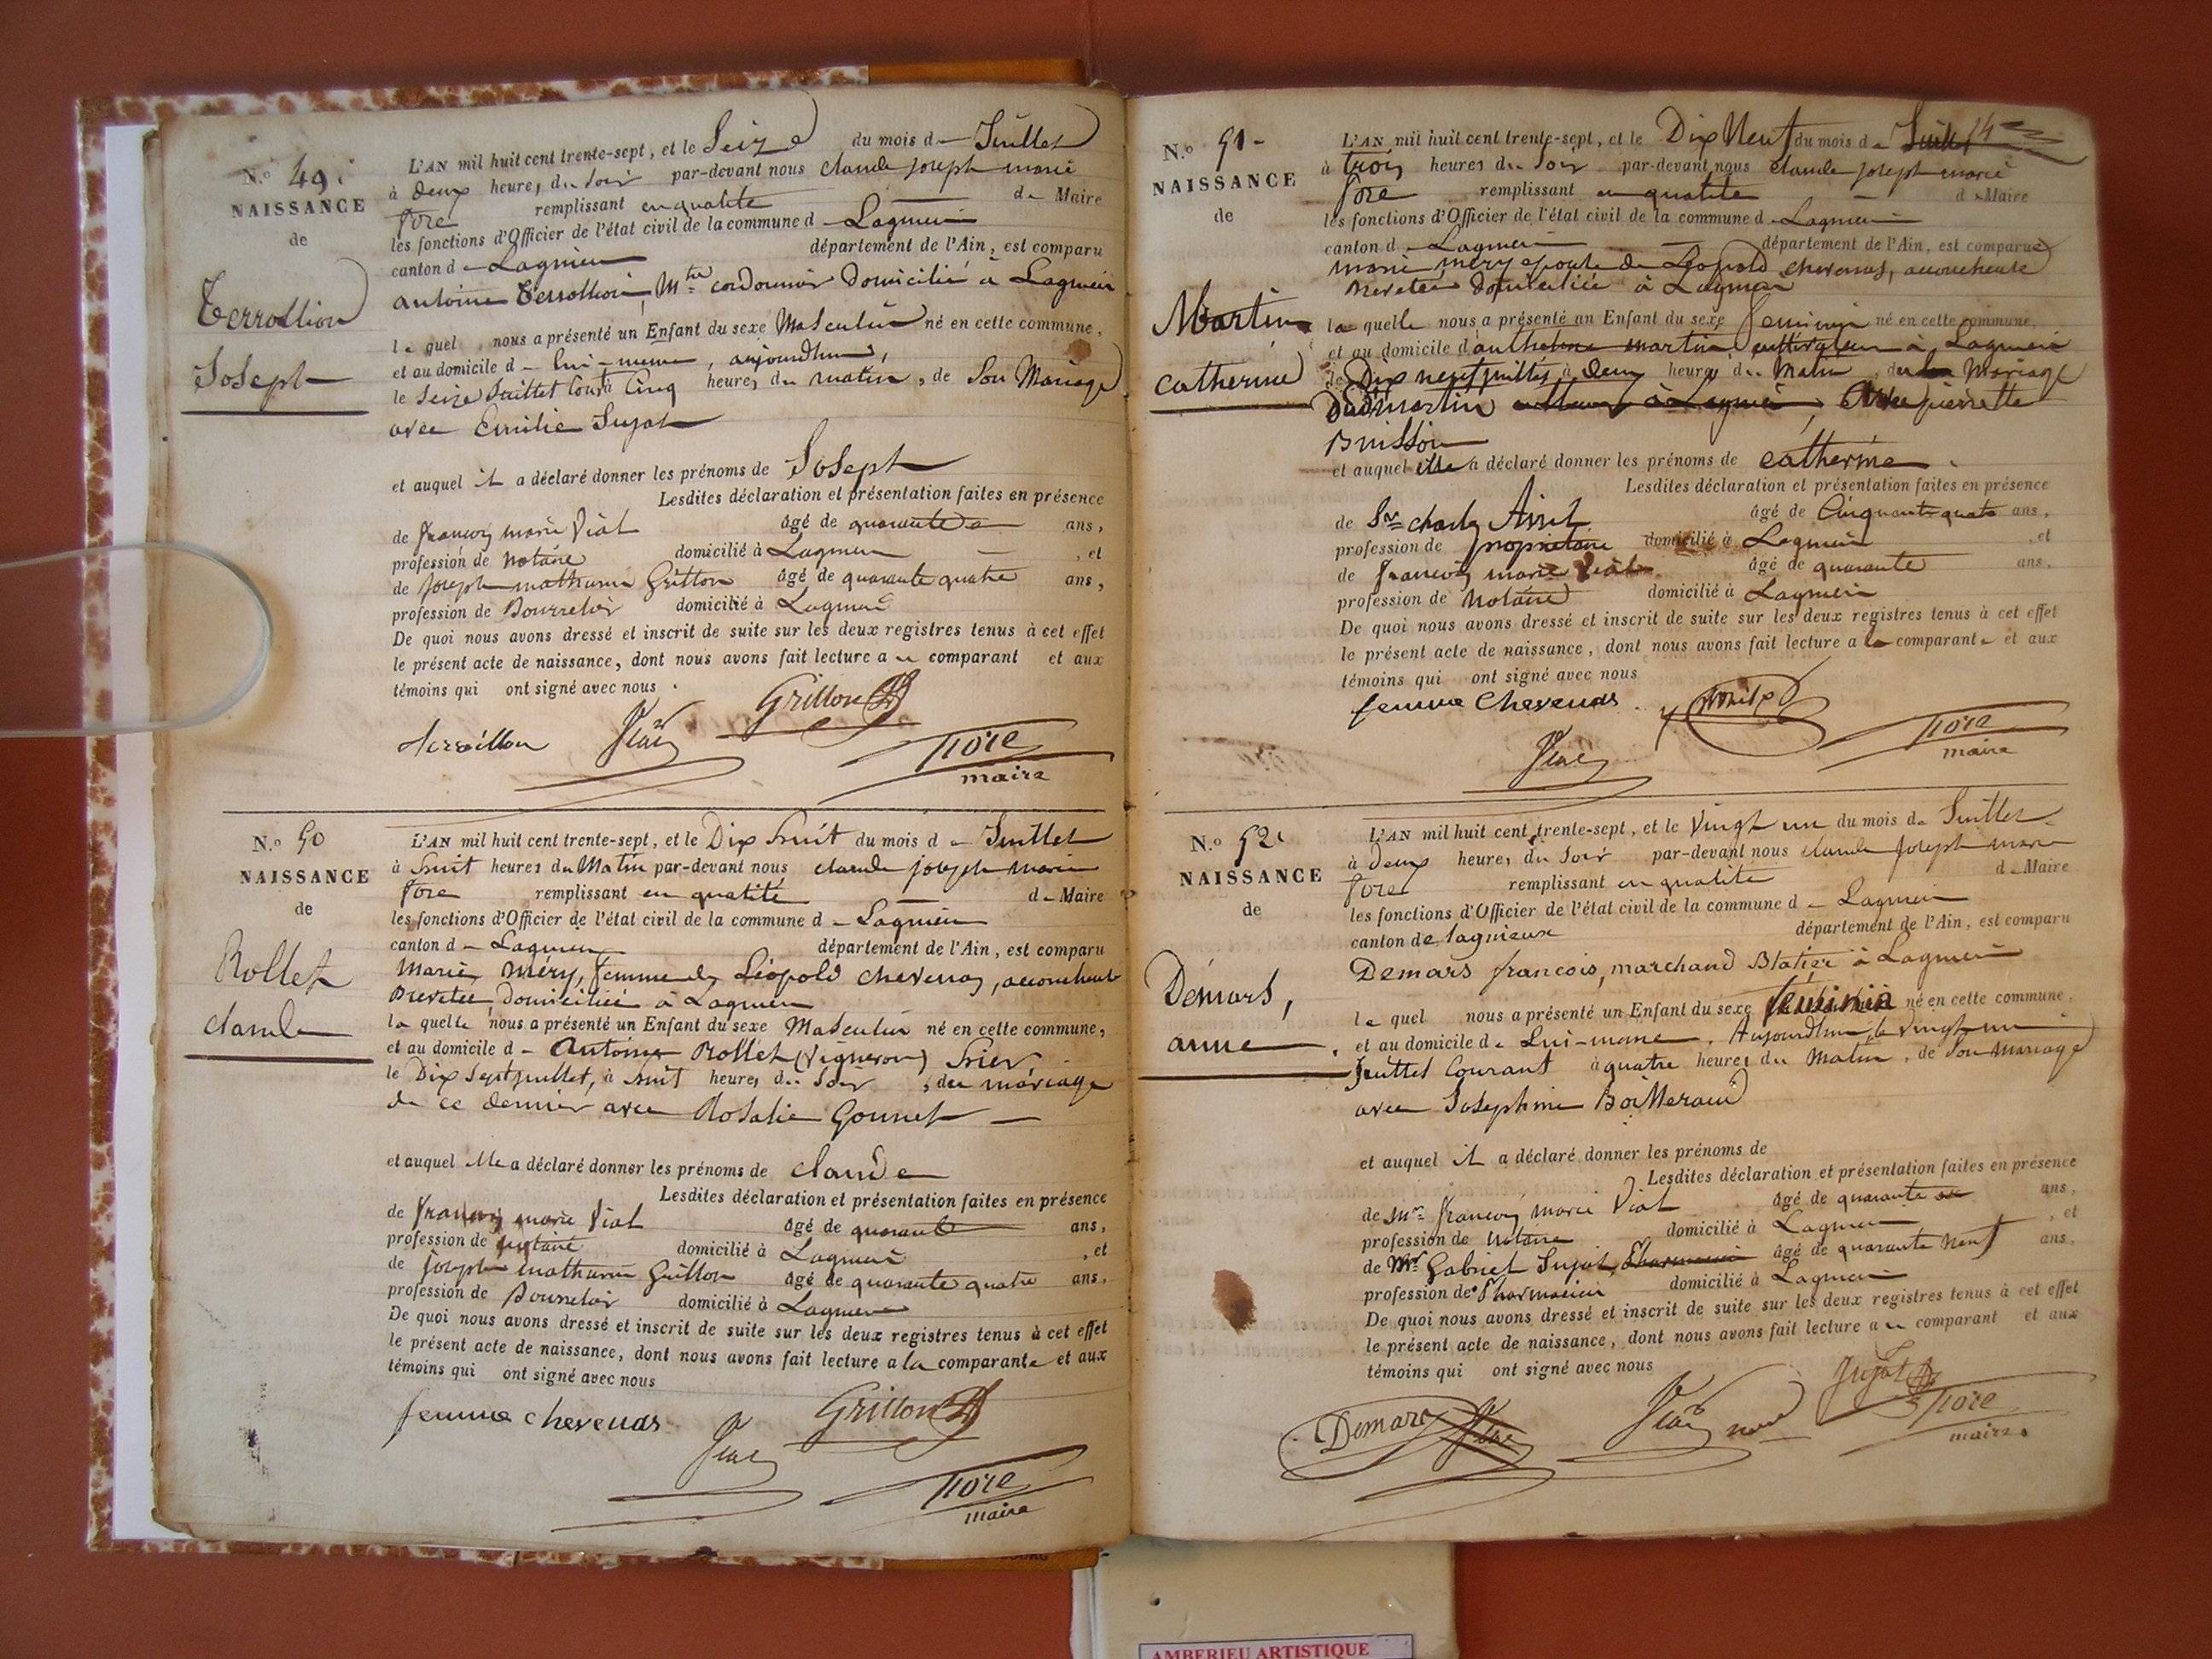 N.º 49.
NAISSANCE
de
Terrollion
Joseph
L'AN mil huit cent trente-sept, et le Seize du mois de Juillet
à deux heures du Soir par-devant nous claude joseph marie
fore remplissant en qualité de Maire
les fonctions d'Officier de l'état civil de la commune d Lagnieu
canton d Lagnieu département de l'Ain, est comparu
antoine Terrollion, Mtre cordonnier Domicilié à Lagnieu
le quel nous a présenté un Enfant du sexe Masculin né en cette commune,
et au domicile de lui-meme, aujourdhui,
le Seize Juillet Court à Cinq heures du matin, de Son Mariage
avec Emilie Sujat
et auquel il a déclaré donner les prénoms de Joseph
Lesdites déclaration et présentation faites en présence
de francois marie Vial âgé de quarante ans,
profession de notaire domicilié à Lagnieu, et
de joseph mathurin Grillon âgé de quarante quatre ans,
profession de Bourrelier domicilié à Lagnieu
De quoi nous avons dressé et inscrit de suite sur les deux registres tenus à cet effet
le présent acte de naissance, dont nous avons fait lecture au comparant et aux
témoins qui ont signé avec nous.
Grillon
Vial
fore
maire
N.º 50
NAISSANCE
de
Rollet
claude
L'AN mil huit cent trente-sept, et le Dix huit du mois de Juillet
à huit heures du Matin par-devant nous claude joseph marie
fore remplissant en qualité de Maire
les fonctions d'Officier de l'état civil de la commune d Lagnieu
canton d Lagnieu département de l'Ain, est comparu
Marie méry, femme de Léopold chevenas, accoucheuse
Brevetée, domiciliée à Lagnieu
la quelle nous a présenté un Enfant du sexe Masculin né en cette commune,
et au domicile d Antoine Rollet (Vigneron) hier
le Dix Sept juillet, à huit heures du Soir, du mariage
de ce dernier avec Rosalie Gonnet
et auquel elle a déclaré donner les prénoms de claude
Lesdites déclaration et présentation faites en présence
de francois marie Vial âgé de quarante ans,
profession de notaire domicilié à Lagnieu, et
de joseph mathurin Grillon âgé de quarante quatre ans,
profession de Bourrelier domicilié à Lagnieu
De quoi nous avons dressé et inscrit de suite sur les deux registres tenus à cet effet
le présent acte de naissance, dont nous avons fait lecture a la comparante et aux
témoins qui ont signé avec nous
femme chevenas
Grillon
Vial
fore
maire
N.º 51
NAISSANCE
de
Martin
catherine
L'AN mil huit cent trente-sept, et le Dix Neuf du mois de Juillet
à trois heures du Soir par-devant nous claude joseph marie
fore remplissant en qualité de Maire
les fonctions d'Officier de l'état civil de la commune d Lagnieu
canton d Lagnieu département de l'Ain, est comparue
marie mery epouse de Léopold chevenas, accoucheuse
Brevetée domiciliée à Lagnieu
la quelle nous a présenté un Enfant du sexe feminin né en cette commune,
et au domicile d'anthelme martin cultivateur à Lagnieu
le Dix neuf juillet, à deux heures du Matin, du Mariage
Dud martin cultivateur à Lagnieu, Avec pierrette
Buisson
et auquel elle a déclaré donner les prénoms de catherine
Lesdites déclaration et présentation faites en présence
de Sr charles âgé de Cinquante quatre ans,
profession de proprietaire domicilié à Lagnieu, et
de francois marie Vial âgé de quarante ans,
profession de Notaire domicilié à Lagnieu
De quoi nous avons dressé et inscrit de suite sur les deux registres tenus à cet effet
le présent acte de naissance, dont nous avons fait lecture a la comparante et aux
témoins qui ont signé avec nous
femme Chevenas
Vial
fore
maire
N.º 52
NAISSANCE
de
Démars,
anne
L'AN mil huit cent trente-sept, et le Vingt un du mois de Juillet
à deux heures du Soir par-devant nous claude joseph marie
fore remplissant en qualité de Maire
les fonctions d'Officier de l'état civil de la commune d Lagnieu
canton de lagnieux département de l'Ain, est comparu
Demars francois, marchand Blatier à Lagnieu
le quel nous a présenté un Enfant du sexe feminin né en cette commune,
et au domicile de Lui-meme, Aujourdhui, le vingt un
Juillet Courant à quatre heures du Matin, de Son Mariage
avec Josephine Boilleraud
et auquel il a déclaré donner les prénoms de
Lesdites déclaration et présentation faites en présence
de Mr francois marie Vial âgé de quarante ans,
profession de Notaire domicilié à Lagnieu, et
de Mr Gabriel Sujat, Pharmacien âgé de quarante neuf ans,
profession de Pharmacien domicilié à Lagnieu
De quoi nous avons dressé et inscrit de suite sur les deux registres tenus à cet effet
le présent acte de naissance, dont nous avons fait lecture au comparant et aux
témoins qui ont signé avec nous
Sujat
Demars Vial Vial fore
maire
AMBERIEU ARTISTIQUE